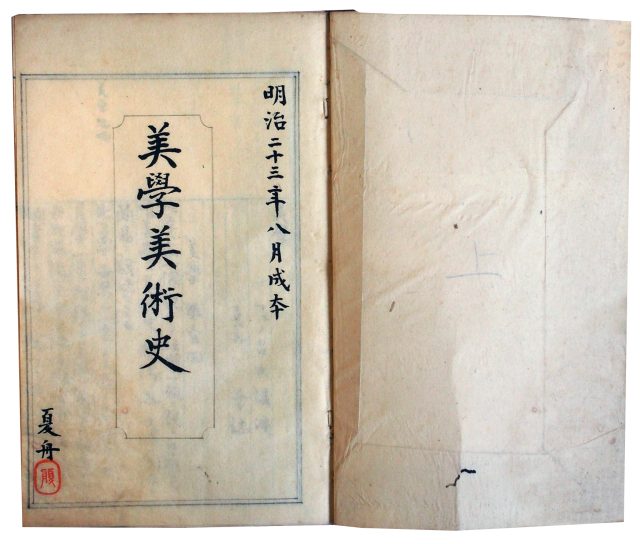 上
明治二十三年八月成夲
美學美術史
夏舟